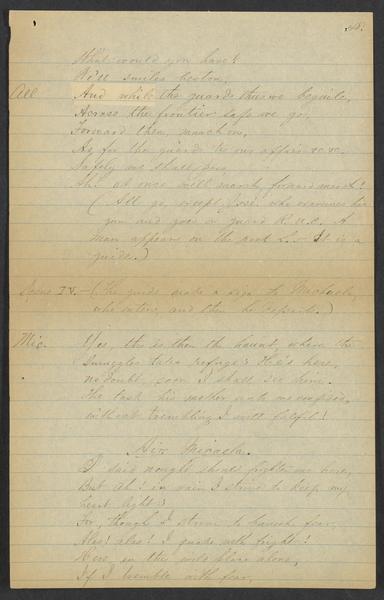 What would you have?
We'll smiles bestow,
All And while the guards thus we beguile,
Across the frontier safe we go,
Forward then, march on,
As for the guards be our affair &c. &c.
Safely we shall
Ah! at once we'll march, forward march!
(All go, except José who examines his
gun and goes on guard R.U.E. A
man appears on the rock L. - It is a
guide.)
Scene IV. - (The guide made a sign to Michaela,
who enters, and then he departs.)
Mic. Yes, this is then the haunt, where the
smugglers take refuge; He's here,
no doubt, soon I shall see him.
The task his mother gave me
without trembling I will fulfil!
Air Micaela.
I said nought should frighten me here,
But Ah! in vain I strive to keep my
heart light;
For, though I strive to banish fear,
Alas! alas! I quake with fright!
Here, in this wild place alone,
If I tremble with fear,